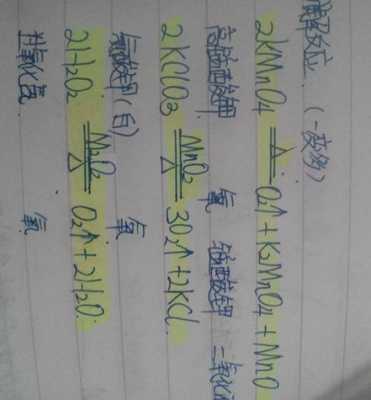 解反应（一变多）
2KMnO₄ ≜ O₂↑+K₂MnO₄+MnO
高锰酸钾 氧 锰酸钾 二氧化
2KClO₃ MnO₂ ═ △ 3O₂↑+2KCl.
氯酸钾（白） 氧
2H₂O₂ ═ △ O₂↑+2H₂O
氧化氢. 氧